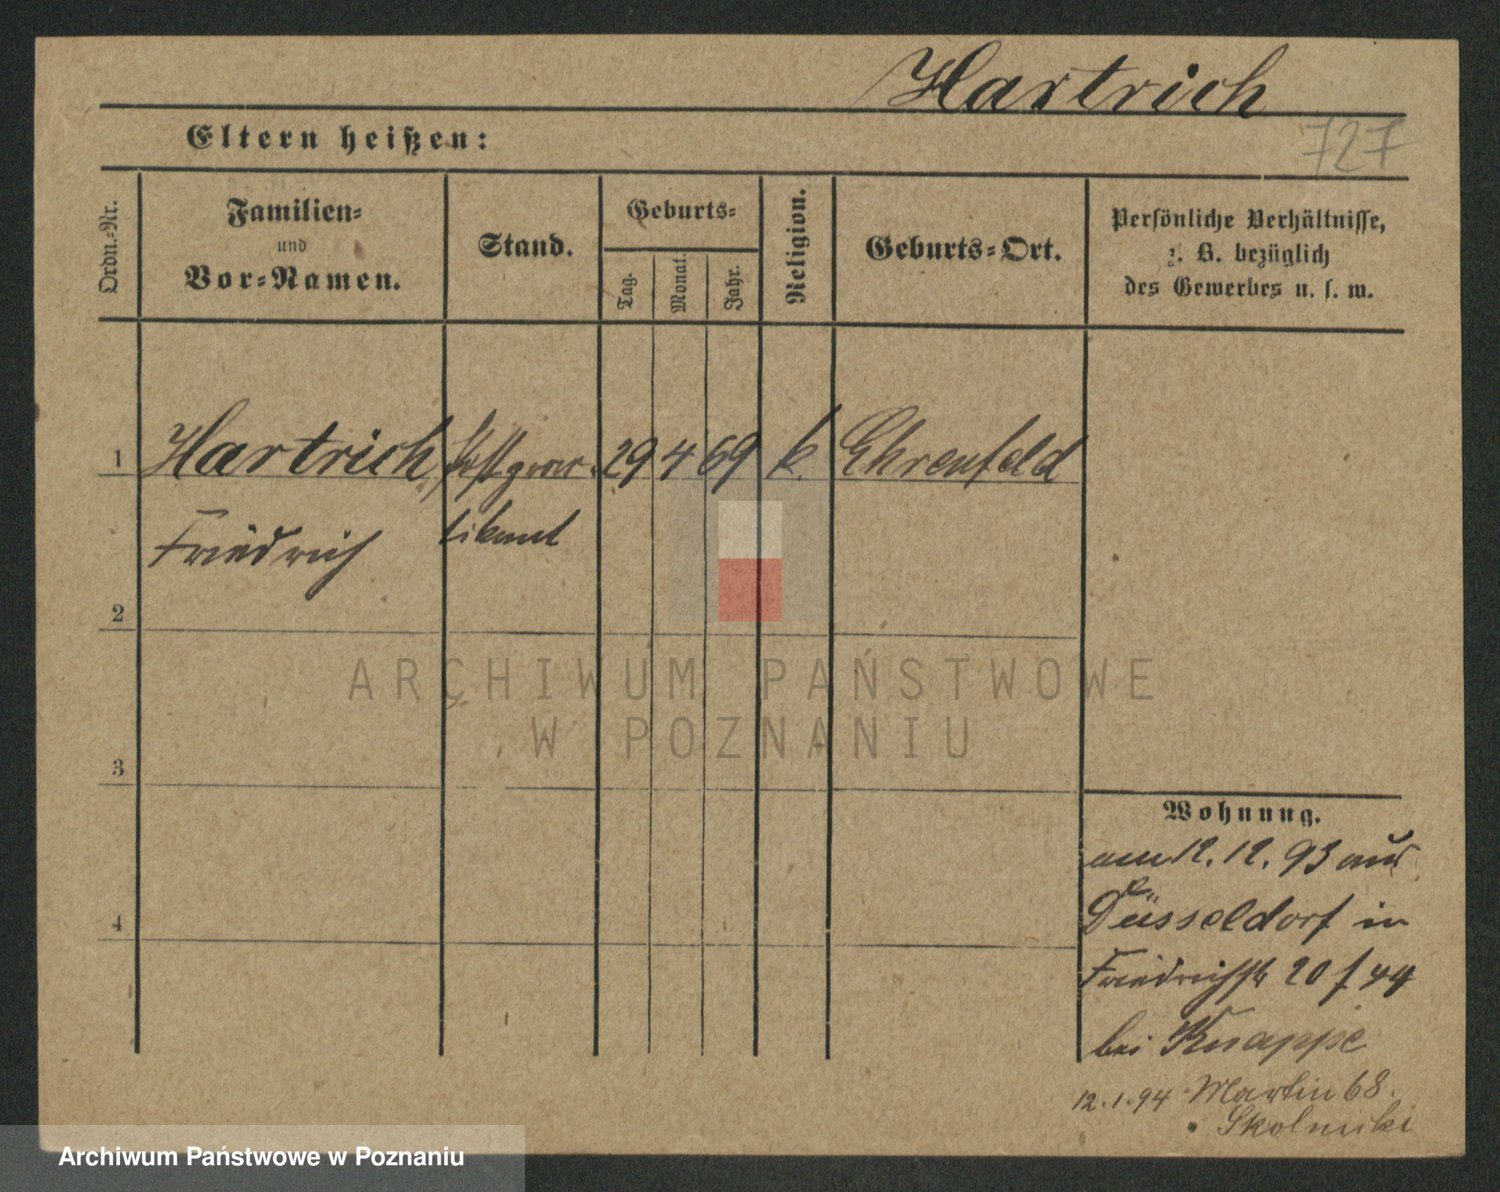 Hartrich
727
Eltern heißen:
Ordn.-Nr.
Familien-
und
Vor-Namen.
Stand.
Geburts-
Tag.
Monat.
Jahr.
Religion.
Geburts-Ort.
Persönliche Verhältnisse,
z. B. bezüglich
des Gewerbes u. s. w.
1 Hartrich, 29 4 69 k. Ehrenfeld
Friedrich
2
3
4
ARCHIWUM PAŃSTWOWE
W POZNANIU
Wohnung.
am 12. 12. 93 aus
Düsseldorf in
Friedrichstr 20
bei Knappe
12.1.94 Martin 68.
Skolnicki
Archiwum Państwowe w Poznaniu